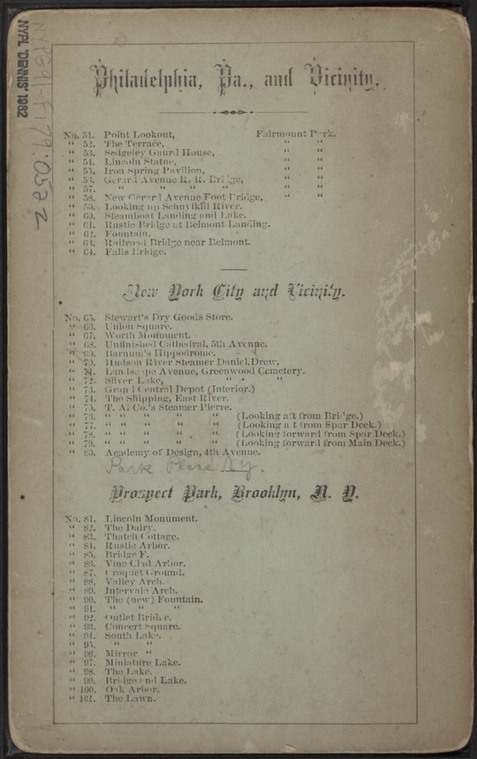 NYPL 'DENNIS' 1982
NYPG91-F179:052z
Philadelphia, Pa., and Vicinity.
No. 51. Point Lookout, Fairmount Park.
" 52. The Terrace, " "
" 53. Sedgeley Guard House, " "
" 54. Lincoln Statue, " "
" 55. Iron Spring Pavilion, " "
" 56. Gerard Avenue R. R. Bridge, " "
" 57. " " " " "
" 58. New Gerard Avenue Foot Bridge, " "
" 59. Looking up Schuylkill River.
" 60. Steamboat Landing and Lake.
" 61. Rustic Bridge at Belmont Landing.
" 62. Fountain.
" 63. Railroad Bridge near Belmont.
" 64. Falls Bridge.
New York City and Vicinity.
No. 65. Stewart's Dry Goods Store.
" 66. Union Square.
" 67. Worth Monument.
" 68. Unfinished Cathedral, 5th Avenue.
" 69. Barnum's Hippodrome.
" 70. Hudson River Steamer Daniel Drew.
" 71. Landscape Avenue, Greenwood Cemetery.
" 72. Silver Lake, " "
" 73. Grand Central Depot (Interior.)
" 74. The Shipping, East River.
" 75. T. A. Co.'s Steamer Pierre.
" 76. " " " " " (Looking aft from Bridge.)
" 77. " " " " " (Looking aft from Spar Deck.)
" 78. " " " " " (Looking forward from Spar Deck.)
" 79. " " " " " (Looking forward from Main Deck.)
" 80. Academy of Design, 4th Avenue.
Park Place N.Y.
Prospect Park, Brooklyn, N. Y.
No. 81. Lincoln Monument.
" 82. The Dairy.
" 83. Thatch Cottage.
" 84. Rustic Arbor.
" 85. Bridge F.
" 86. Vine Clad Arbor.
" 87. Croquet Ground.
" 88. Valley Arch.
" 89. Intervale Arch.
" 90. The (new) Fountain.
" 91. " " "
" 92. Outlet Bridge.
" 93. Concert Square.
" 94. South Lake.
" 95. " "
" 96. Mirror "
" 97. Miniature Lake.
" 98. The Lake.
" 99. Bridge and Lake.
" 100. Oak Arbor.
" 101. The Lawn.